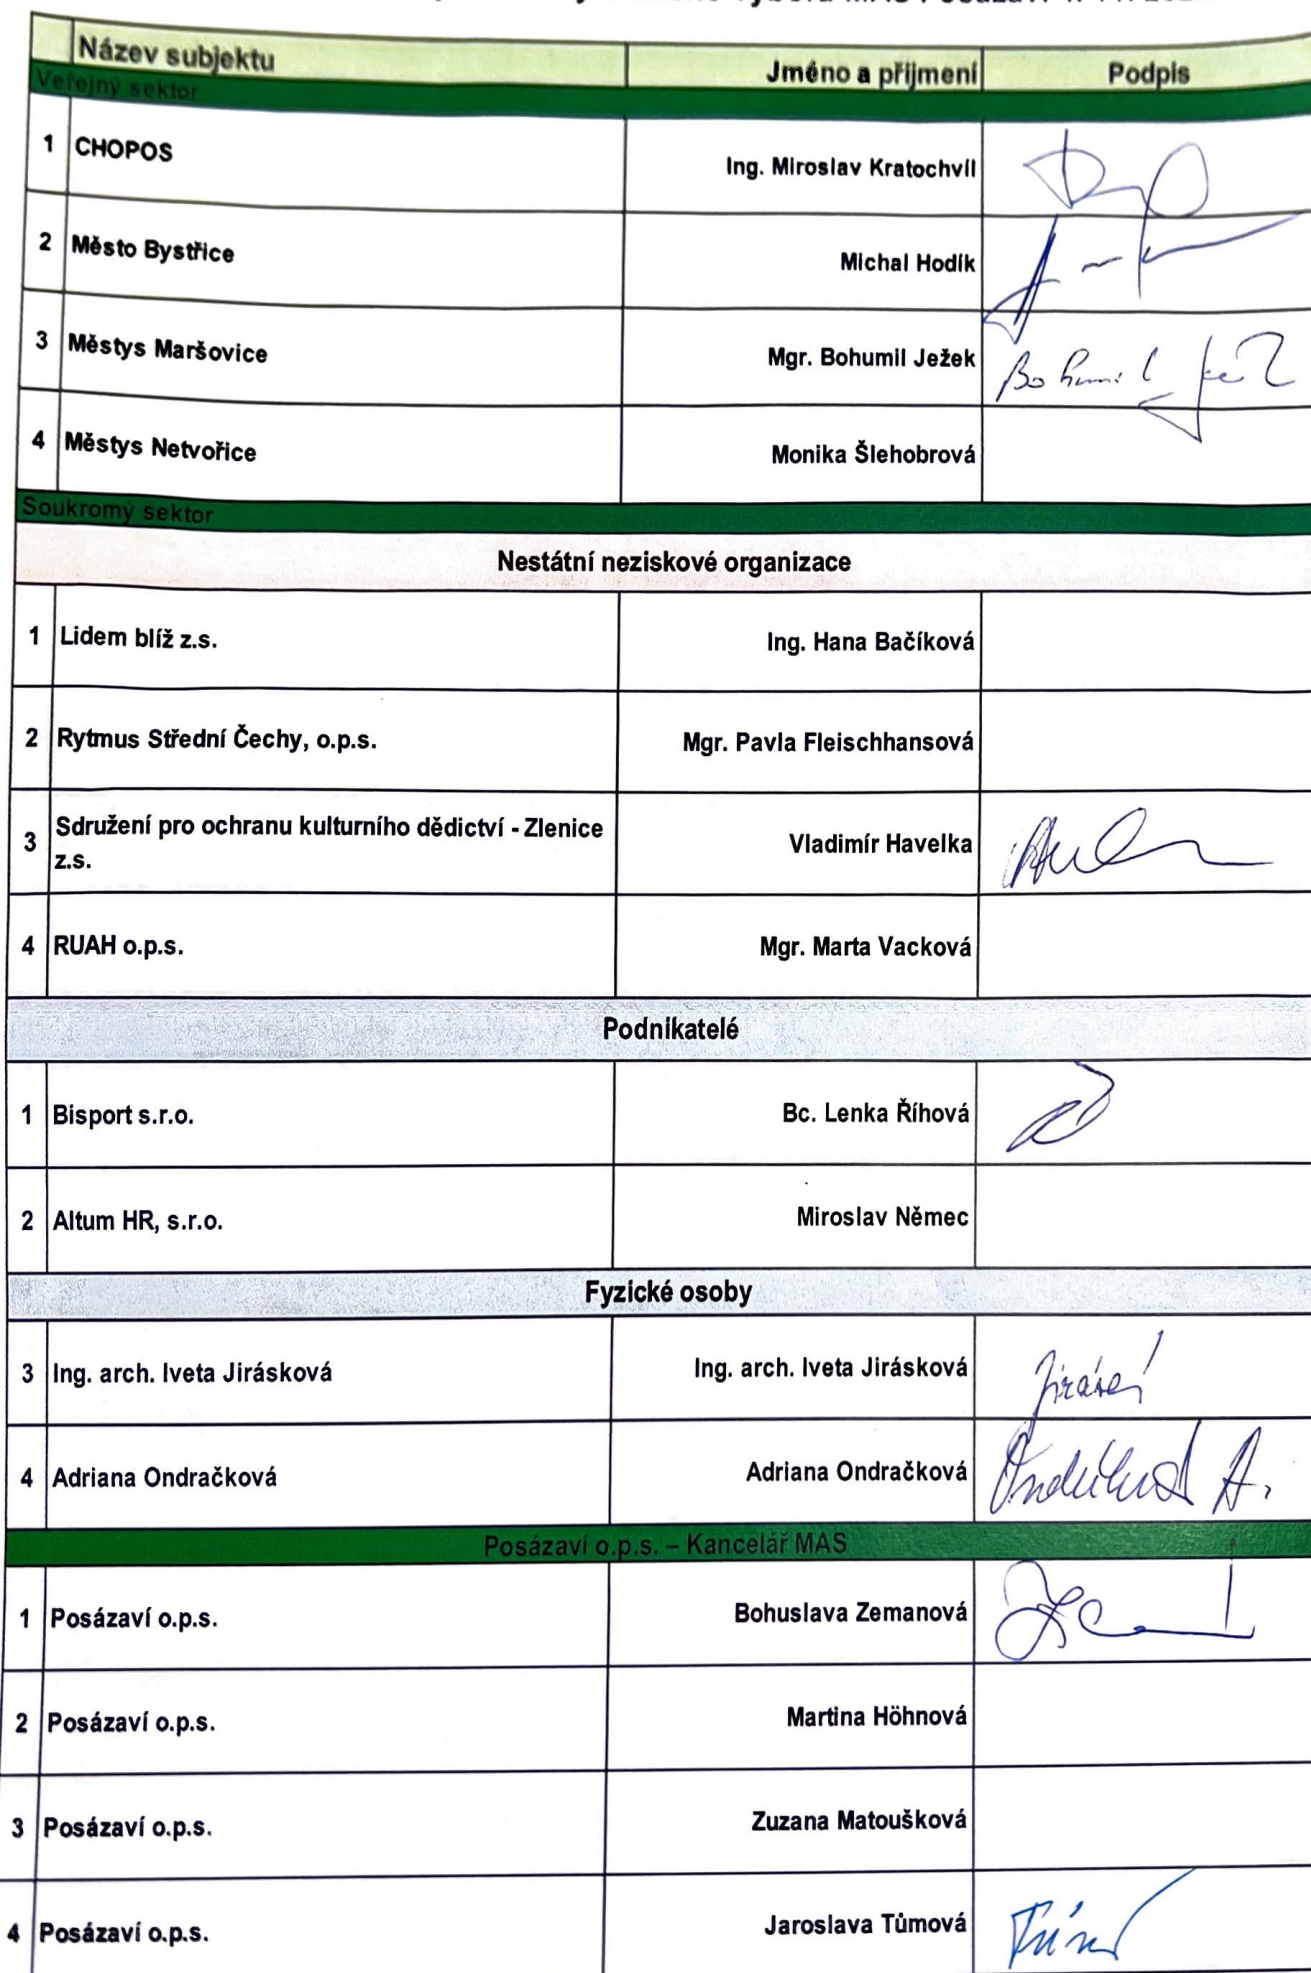 Název subjektu Jméno a příjmení Podpis
Veřejný sektor
1 CHOPOS Ing. Miroslav Kratochvíl
2 Město Bystřice Michal Hodík
3 Městys Maršovice Mgr. Bohumil Ježek Bohumil Jež
4 Městys Netvořice Monika Šlehobrová
Soukromý sektor
Nestátní neziskové organizace
1 Lidem blíž z.s. Ing. Hana Bačíková
2 Rytmus Střední Čechy, o.p.s. Mgr. Pavla Fleischhansová
3 Sdružení pro ochranu kulturního dědictví - Zlenice
z.s. Vladimír Havelka
4 RUAH o.p.s. Mgr. Marta Vacková
Podnikatelé
1 Bisport s.r.o. Bc. Lenka Říhová
2 Altum HR, s.r.o. Miroslav Němec
Fyzické osoby
3 Ing. arch. Iveta Jirásková Ing. arch. Iveta Jirásková
4 Adriana Ondračková Adriana Ondračková
Posázaví o.p.s. – Kancelář MAS
1 Posázaví o.p.s. Bohuslava Zemanová
2 Posázaví o.p.s. Martina Höhnová
3 Posázaví o.p.s. Zuzana Matoušková
4 Posázaví o.p.s. Jaroslava Tůmová